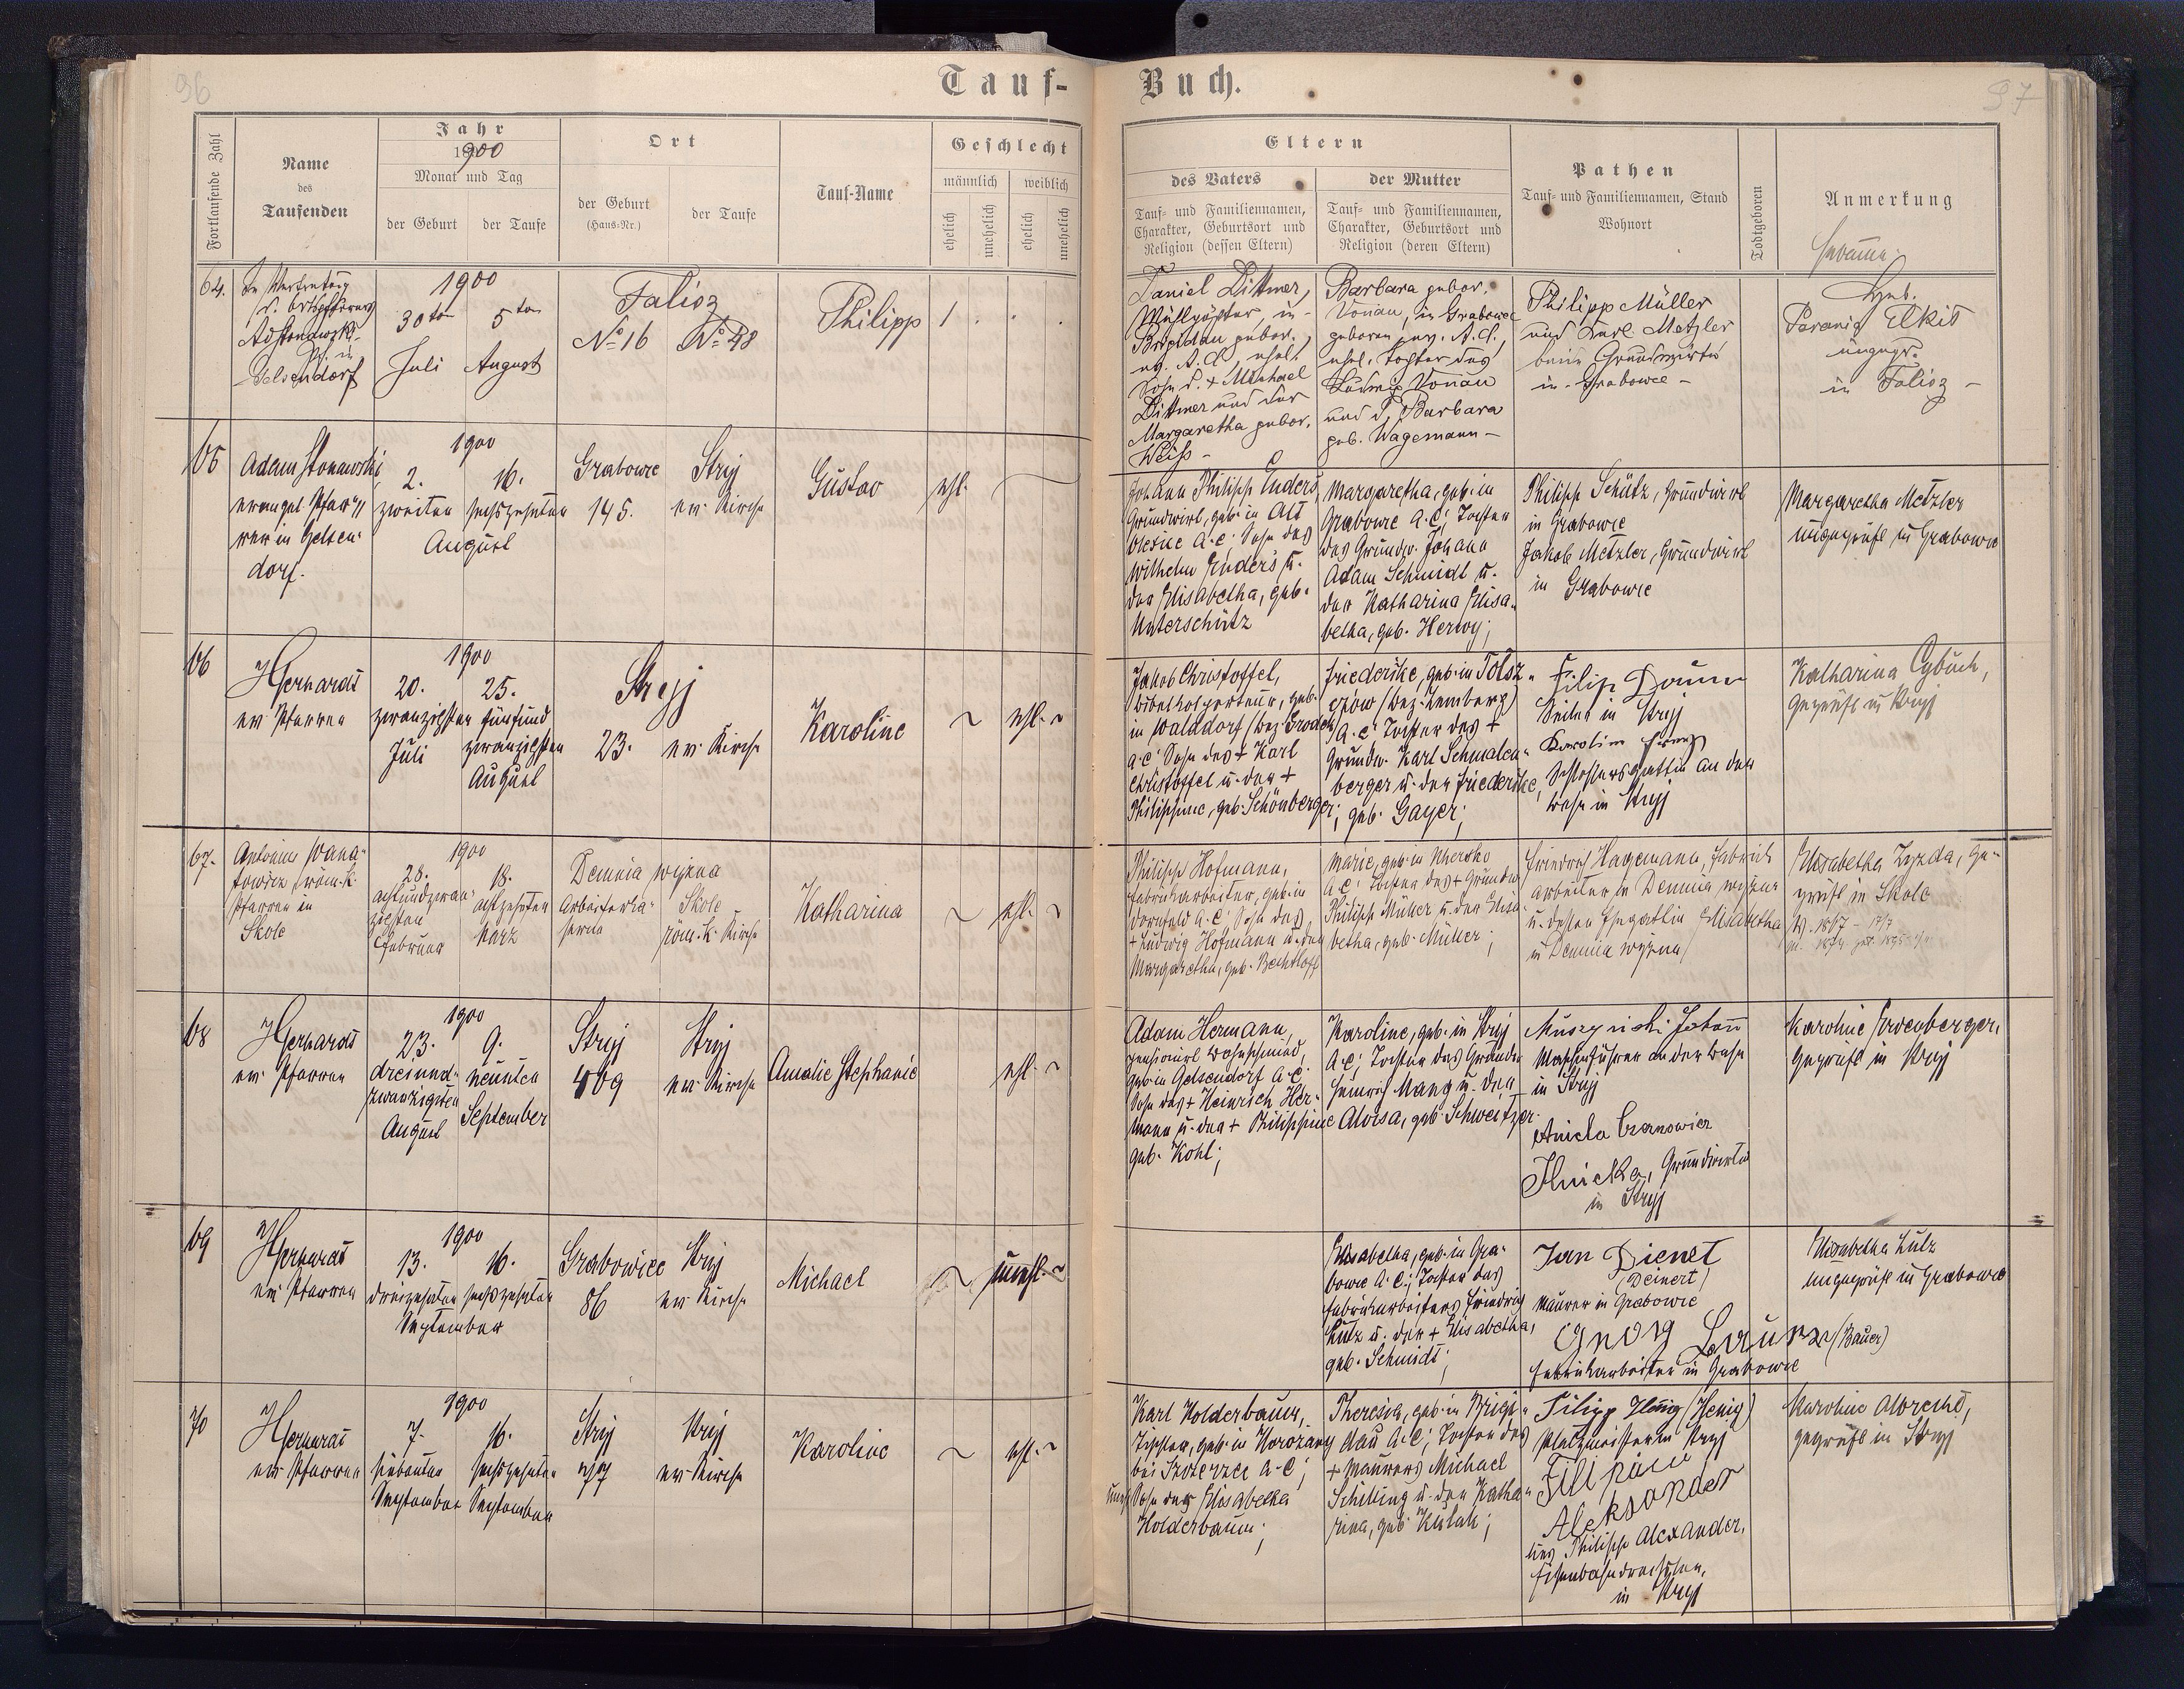 96
Tauf-
Buch.
97
Fortlaufende Zahl
Name
des
Taufenden
Jahr
1900
Monat und Tag
der Geburt
der Taufe
Ort
der Geburt
(Haus-Nr.)
der Taufe
Tauf-Name
Geschlecht
männlich
weiblich
ehelich
unehelich
ehelich
unehelich
Eltern
des Vaters
Tauf- und Familiennamen,
Charakter, Geburtsort und
Religion (dessen Eltern)
der Mutter
Tauf- und Familiennamen,
Charakter, Geburtsort und
Religion (deren Eltern)
Pathen
Tauf- und Familiennamen, Stand
Wohnort
Todtgeboren
Anmerkung
Hebamme
64.
In Vertretung
Pf. in
Gelsendorf
1900
30ten
5ten
Juli
August
Falisz
No 16
No 48
Philipp
1
Daniel Dittmer,
in
Brigidau gebor.
ev. A.C., ehel.
Sohn d. + Michael
Dittmer und der
Margaretha gebor.
Weiß -
Barbara gebor.
Vonau, in Grabowce
geboren, ev. A.C.,
ehel. Tochter des
Ludwig Vonau
und d. Barbara
geb. Wagemann -
Philipp Müller
und Karl Metzler
beide Grundwirte
in Grabowce -
Hyeb.
Parania Elkis
ungepr.
in Falisz -
65
Adam Stonawski,
evangel. Pfar-
rer in Gelsen-
dorf.
1900
2.
16.
zweiten
sechszehnten
August
Grabowce
145.
Stryj
ev. Kirche
Gustav
ehl.
Johann Philipp Enders,
Grundwirt, geb. in Alt
Oleśnic A.C. Sohn des
Wilhelm Enders u.
der Elisabetha, geb.
Unterschütz
Margaretha, geb. in
Grabowce A.C; Tochter
des Grundw. Johann
Adam Schmidt u.
der Katharina Elisa-
betha, geb. Herwy;
Philipp Schütz, Grundwirt
in Grabowce
Jakob Metzler, Grundwirt
in Grabowce
Margaretha Metzler
ungeprüft in Grabowce
66
HGerhardt
ev. Pfarrer
1900
20.
25.
zwanzigsten
fünfund
zwanzigsten
Juli
August
Stryj
23.
ev. Kirche
Karoline
ehl.
Jakob Christoffel,
geb.
in Walddorf (Bez. Grodek)
A.C. Sohn des + Karl
Christoffel u. der +
Philippine, geb. Schönberger;
Friederike, geb. in Tolsz-
czów (Bez. Lemberg)
A.C. Tochter des +
Grundw. Karl Schmalen-
berger u. der Friederike,
geb. Gayer;
Filip Daum
Seiler in Stryj
Karolina Franz
Schlossersgattin an der
Bahn in Stryj
Katharina Cybuch,
geprüft in Stryj
67.
Antonius Wana-
towicz, röm. k.
Pfarrer in
Skole
1900
28.
18.
achtundzwan-
zigsten
achtzehnten
Februar
März
Demnia wyżna
Arbeiterka-
serne
Skole
röm. k. Kirche
Katharina
ehl.
Philipp Hofmann,
Fabriksarbeiter, geb. in
Dornfeld A.C. Sohn des
+ Ludwig Hofmann u. der
Margaretha, geb. Bechtloff
Marie, geb. in Ugersko
A.C; Tochter des + Grundw.
Philipp Müller u. der Elisa-
betha, geb. Müller;
Friedrich Hagemann, Fabriks
arbeiter in Demnia wyżna
u. dessen Ehegattin Elisabetha
in Demnia wyżna
Elisabetha Zyzda, ge-
prüft in Skole
68
HGerhardt
ev. Pfarrer
1900
23.
9.
dreiund-
zwanzigsten
neunten
August
September
Stryj
409
Stryj
ev. Kirche
Amalie Stephanie
ehl.
Adam Hermann,
pensionirt. Bahnschmied,
geb. in Gelsendorf A.C.
Sohn des + Heinrich Her-
mann u. der + Philippine
geb. Kohl;
Karoline, geb. in Stryj
A.C; Tochter des Grundw.
Heinrich Mang u. der
Aloisa, geb. Schweitzer.
Muszyński Johann
Maschinführer an der Bahn
in Stryj
Aniela Czarnowicz
Hnicka, Grundwirtin
in Stryj
Karoline Ervenberger,
geprüft in Stryj
69
HGerhardt
ev. Pfarrer
1900
13.
16.
dreizehnten
sechszehnten
September
Grabowiec
86
Stryj
ev. Kirche
Michael
unehl.
Elisabetha, geb. in Gra-
bowce A.C; Tochter des
Fabriksarbeiters Friedrich
Lutz u. der + Elisabetha,
geb. Schmidt;
Jan Dienet
(Deinert)
Maurer in Grabowce
Georg Lauer (Bauer)
Fabriksarbeiter in Grabowce
Elisabetha Lutz
ungeprüft in Grabowce
70
HGerhardt
ev. Pfarrer
1900
7.
16.
siebenten
sechszehnten
September
September
Stryj
Stryj
ev. Kirche
Karoline
ehl.
Karl Holderbaum,
Tischler, geb. in Horożany
bei Szczerzec A.C;
unehl. Sohn der Elisabetha
Holderbaum;
Theresia, geb. in Brigi-
dau A.C; Tochter des
+ Maurers Michael
Schilling u. der Katha-
rina, geb. Kulak;
Filipp Henig (Henig)
Platzmeister in Stryj
Filipine
Aleksander
Philipp Alexander,
Eisenbahn
in Stryj
Karoline Albrecht,
geprüft in Stryj